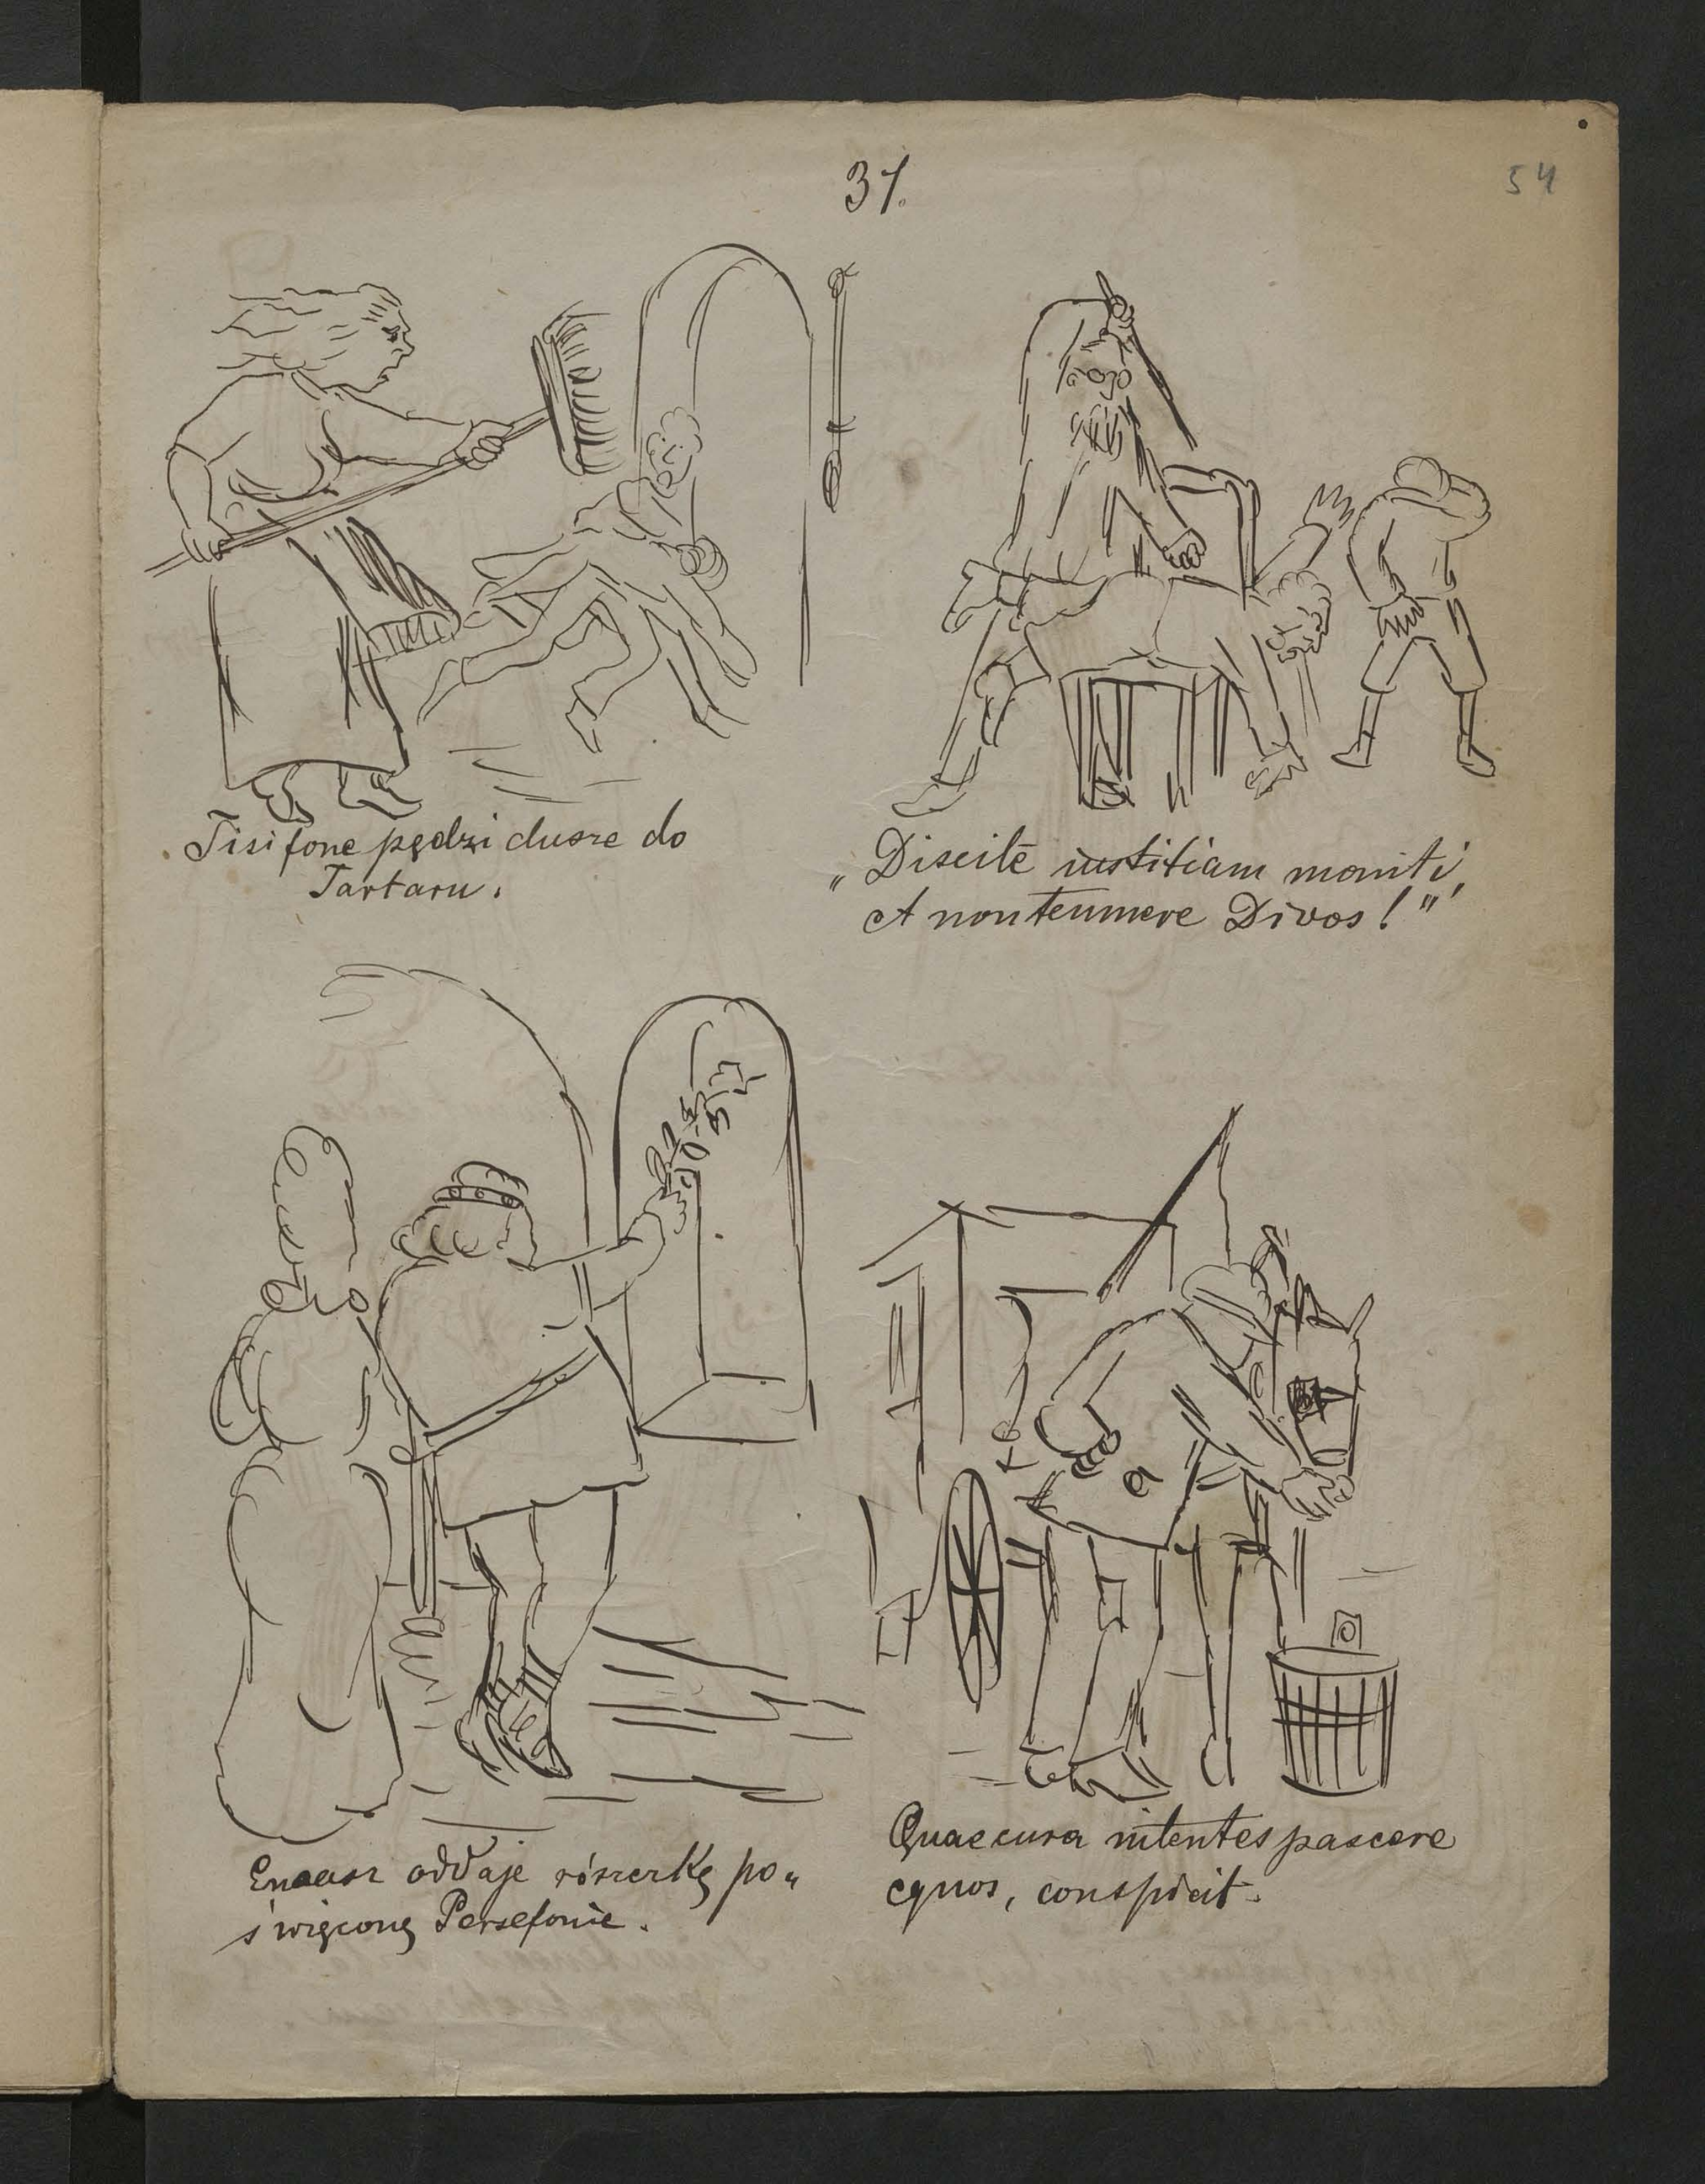 31.
54
Tisifone pędzi dusze do
Tartaru.
„Discite iustitiam moniti,
et non temnere Divos!"
Eneasz oddaje różczkę po„
święconą Persefonie.
Quae cura nitentes pascere
equos, conspicit.